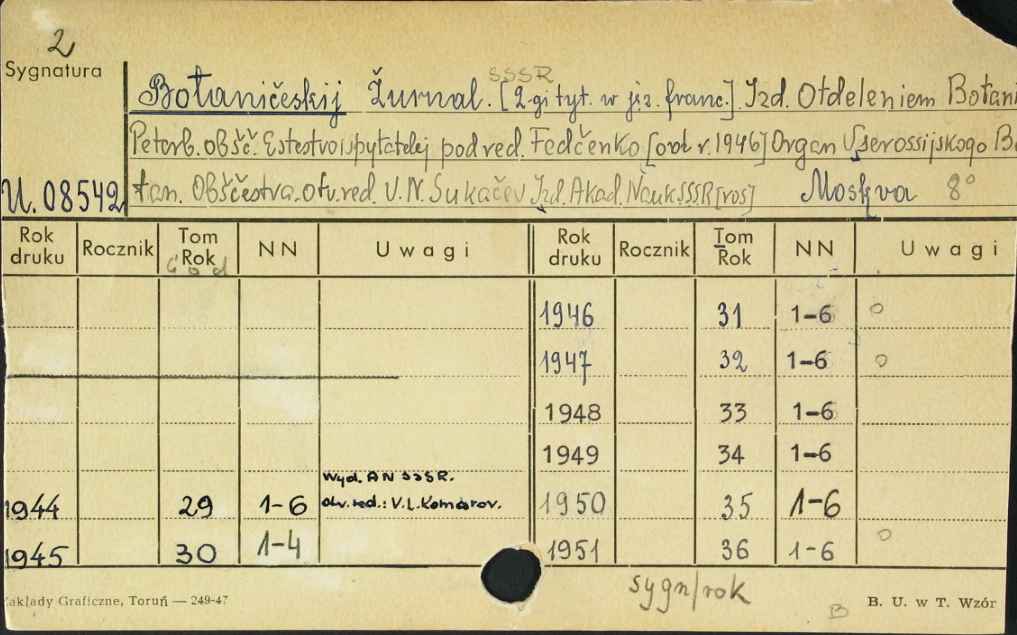 2
Sygnatura
SSSR
Botaničeskij Žurnal. [2-gi tyt. w jęz. franc.]. Izd. Otdeleniem Botani
Peterb. Obšč. Estestvoispytatelej pod red. Fedčenko [od r. 1946] Organ Vserossijskogo Bo
U. 08542
tan. Obščestva. otv. red. V. N. Sukačev Izd. Akad. Nauk SSSR [ros] Moskva 8°
Rok druku Rocznik Tom Rok NN Uwagi Rok druku Rocznik Tom Rok NN Uwagi
1946 31 1-6 o
1947 32 1-6 o
1948 33 1-6
1949 34 1-6
Wyd. AN SSSR.
1944 29 1-6 Otv. red.: V. L. Komarov. 1950 35 1-6
1945 30 1-4 1951 36 1-6 o
sygn/rok
akłady Graficzne, Toruń — 249-47
B
B. U. w T. Wzór